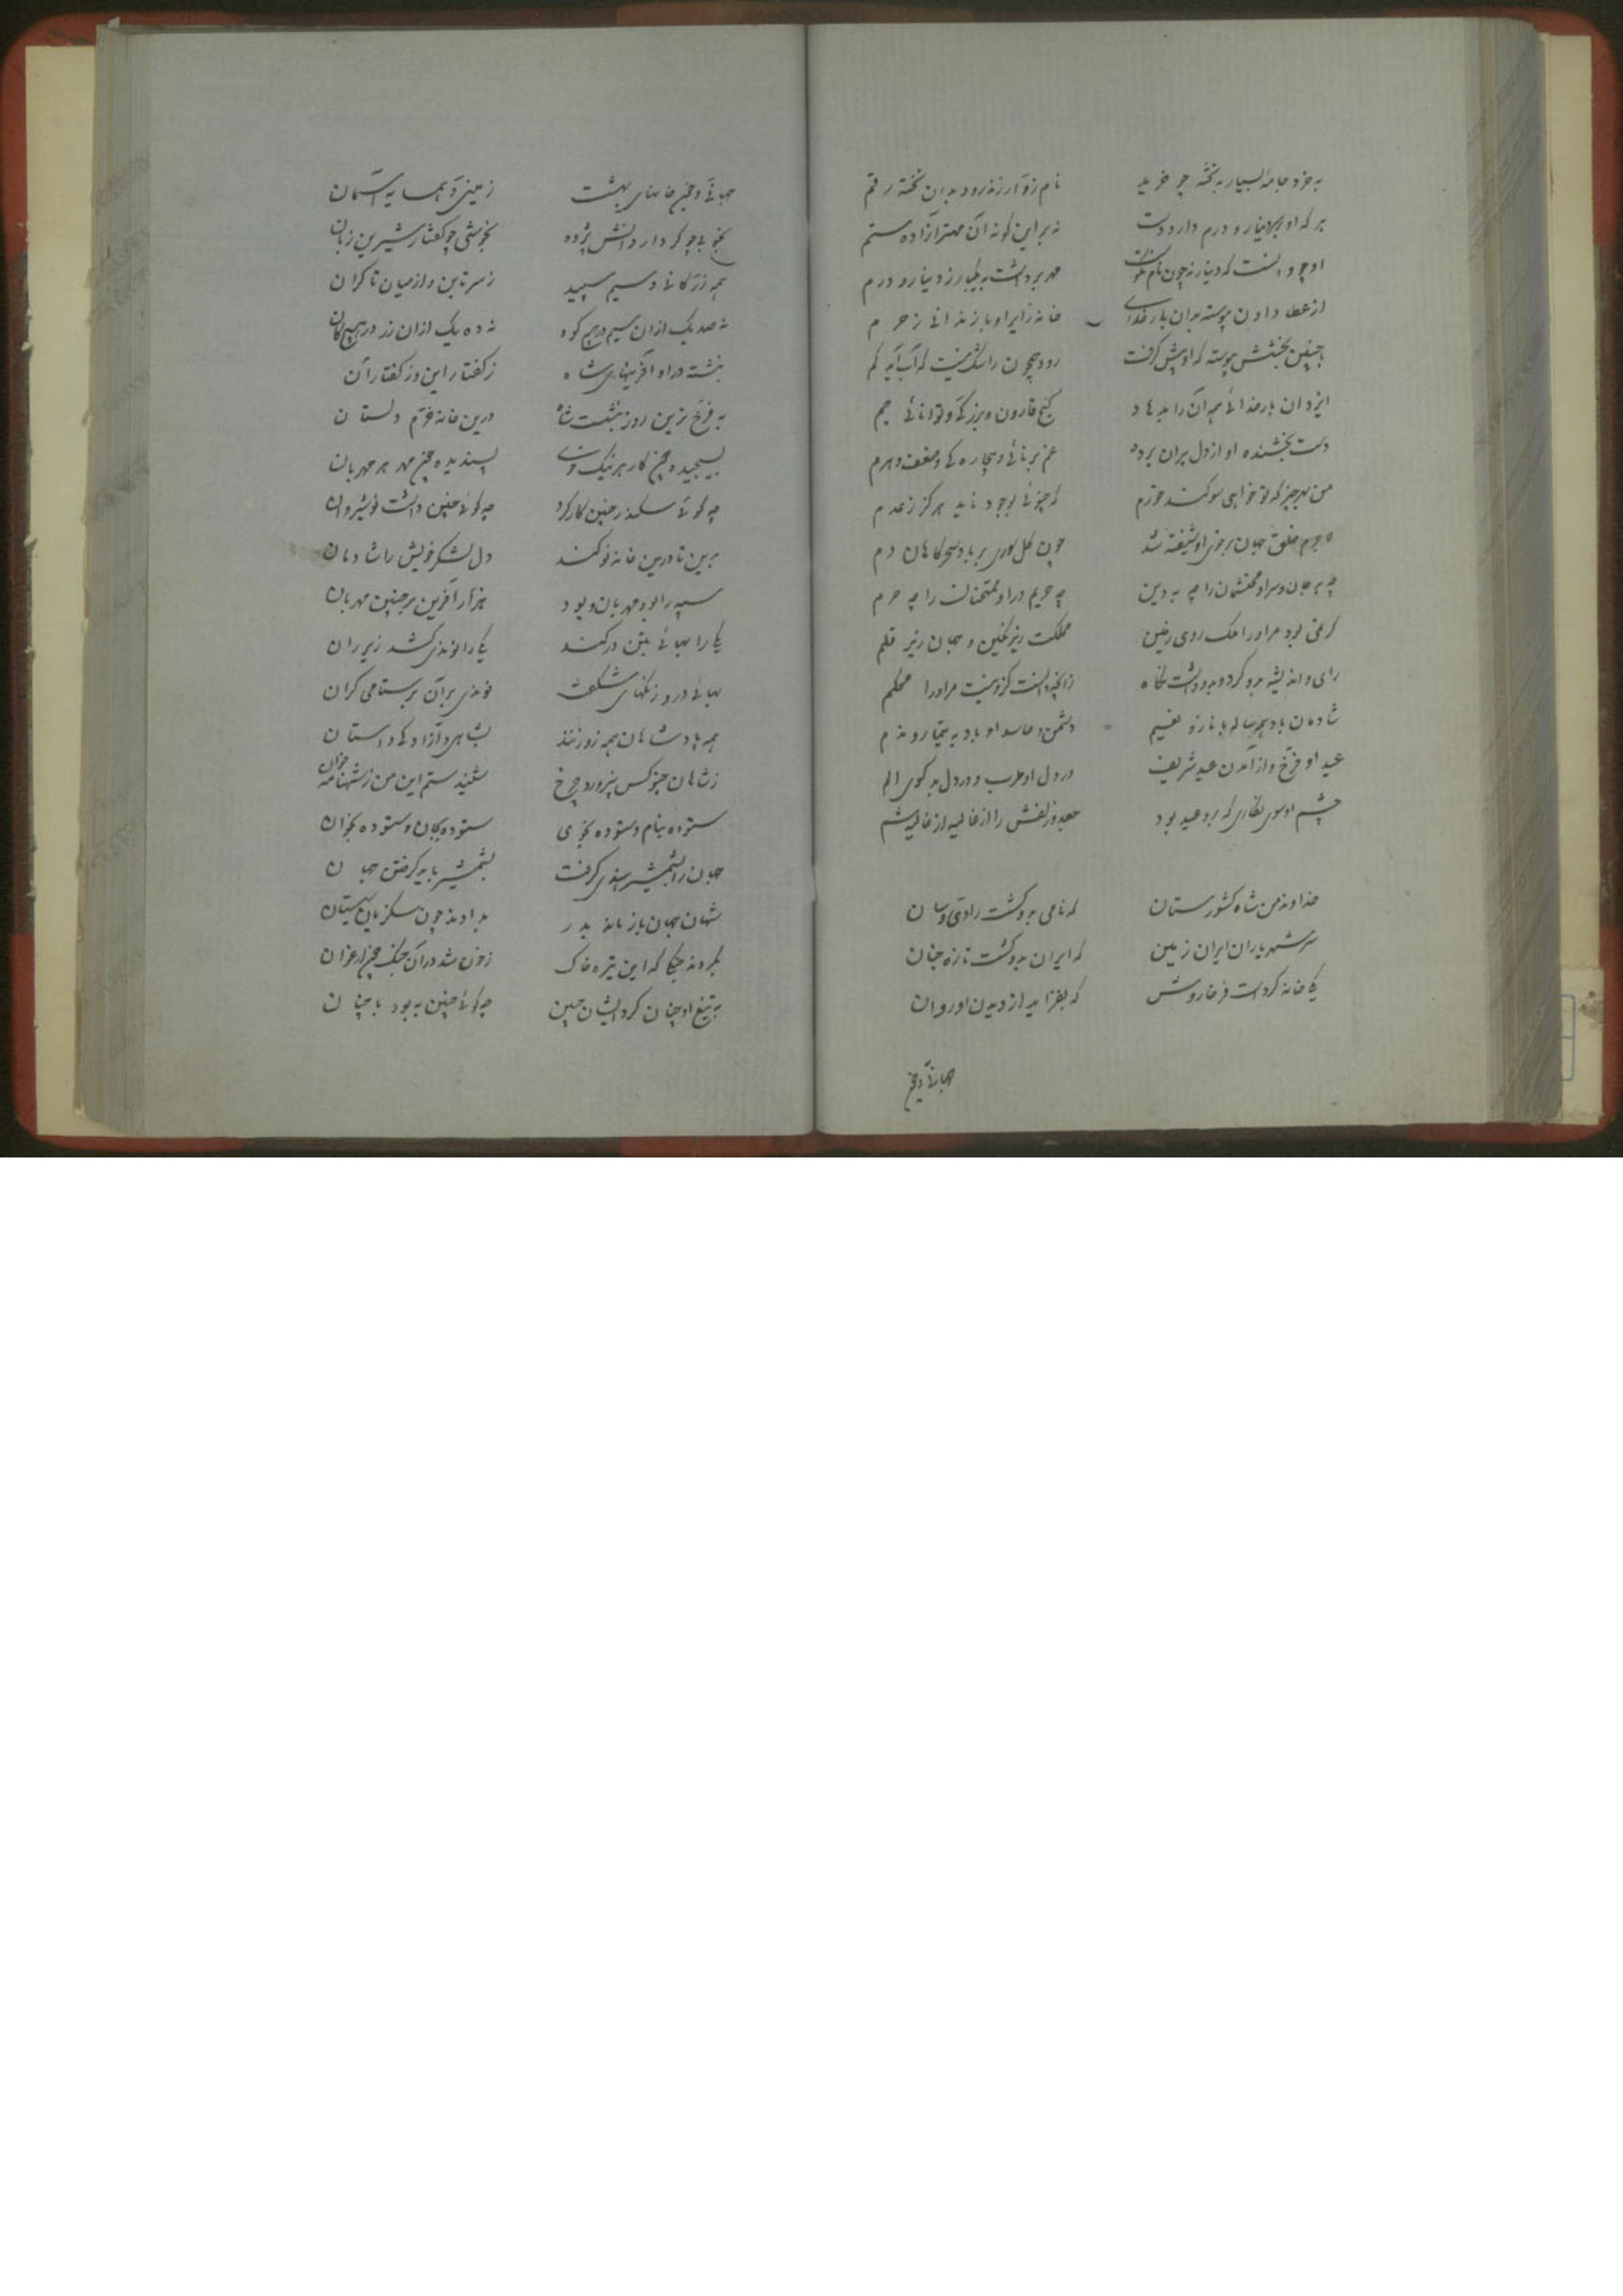 به خرد جامه بسیار به تخته چو خرید نام زوّار زند زود بدان تخته رقم
هر که او بر دینار و درم دارد دست نه بر این گونه آن مهتر آزاده ستم
او چو دانست که دینار نه چون نام نکوست مهر برداشت به یکبار ز دینار و درم
از عطا دادن پیوسته بدان بار خدای خانه زایر او باز ندانی ز حرم
با چنین بخشش پیوسته که او پیش گرفت رود جیحون را شک نیست که آب آید کم
ایزد آن بار خدائی همه آن را بدهاد گنج قارون و بزرگی و توانائی جم
دست بخشنده او از دل پیران برده غم برنائی و بیچارگی و ضعف و هرم
من بهر چیز که تو خواهی سوگند خورم که چنوئی بوجود ناید هرگز ز عدم
لاجرم خلق جهان بر خوی او شیفته شد چون گل سوری بر باد سحرگاهان دم
چه بر جان و سر او محتشمان را چه به دین چه حریم در او ممتحنان را چه حرم
گر غنی بود مر او را ملک روی زمین مملکت زیر نگین و جهان زیر قلم
رای و اندیشه بدو کرد و بدو داشت نگاه زانکه دانست کزو نیست مر او را محکم
شادمان باد همه ساله با ناز و نعیم دشمن و حاسد او باد به تیمار و ندم
عید او فرّخ و از آمدن عید شریف در دل او طرب و در دل بدگوی الم
چشم او سوی نگاری که برو عید بود جعد و زلفش را از غالیه از غالیه شم
خداوند من شاه کشورستان که نامی بدو گشت زاولستان
سر شهریاران ایران زمین که ایران بدو گشت تازه جنان
یکی خانه کرده است فرخاروش که بفزاید از دیدن او روان
جهانی و چون
جهانی و چون خانهای بهشت زمینی و همسایه آسمان
بخوبی چو کردار دانش پژوه بخوشی چو گفتار شیرین زبان
همه زرّ کانی و سیم سپید ز سر تا بن و از میان تا کران
نه صد یک از آن سیم در هیچ کوه نه ده یک از آن زر در هیچ کان
نبشته در او آفرینهای شاه ز گفتار این و ز گفتار آن
به فرّخ‌ترین روز بنشست شاه درین خانه خرّم دلستان
بسیجیده چون کار هر نیک‌خوی پسندیده چون مهر هر مهربان
چه گوئی سکندر چنین کار کرد چه گوئی چنین داشت نوشیروان
برین تا درین خانه نو کند دل لشکر خویش را شادمان
سپه را بود مهربان و بود هزار آفرین بر چنین مهربان
یکی را بهائی بتن درکند یکی را نوندی کشد زیر ران
بهائی در و رنگهای شگفت نوندی بر آن بر ستامی گران
همه پادشاهان همه زو زنند بشاهی و آزادگی داستان
ز شاهان چنو کس نپرورد چرخ شنیدستم این من ز شهنامه خوان
ستوده بنام و ستوده بخوی ستوده بجان و ستوده بخوان
جهان را بشمشیر هندی گرفت بشمشیر باید گرفتن جهان
شهان جهان باز ماند بدر بدادند چون سکزیان سیستان
بکردند جنگی که این تیره خاک ز خون شد در آن جنگ چون ارغوان
به تیغ او چنان کرد ایشان چنین چه گوئی چنین به بود یا چنان